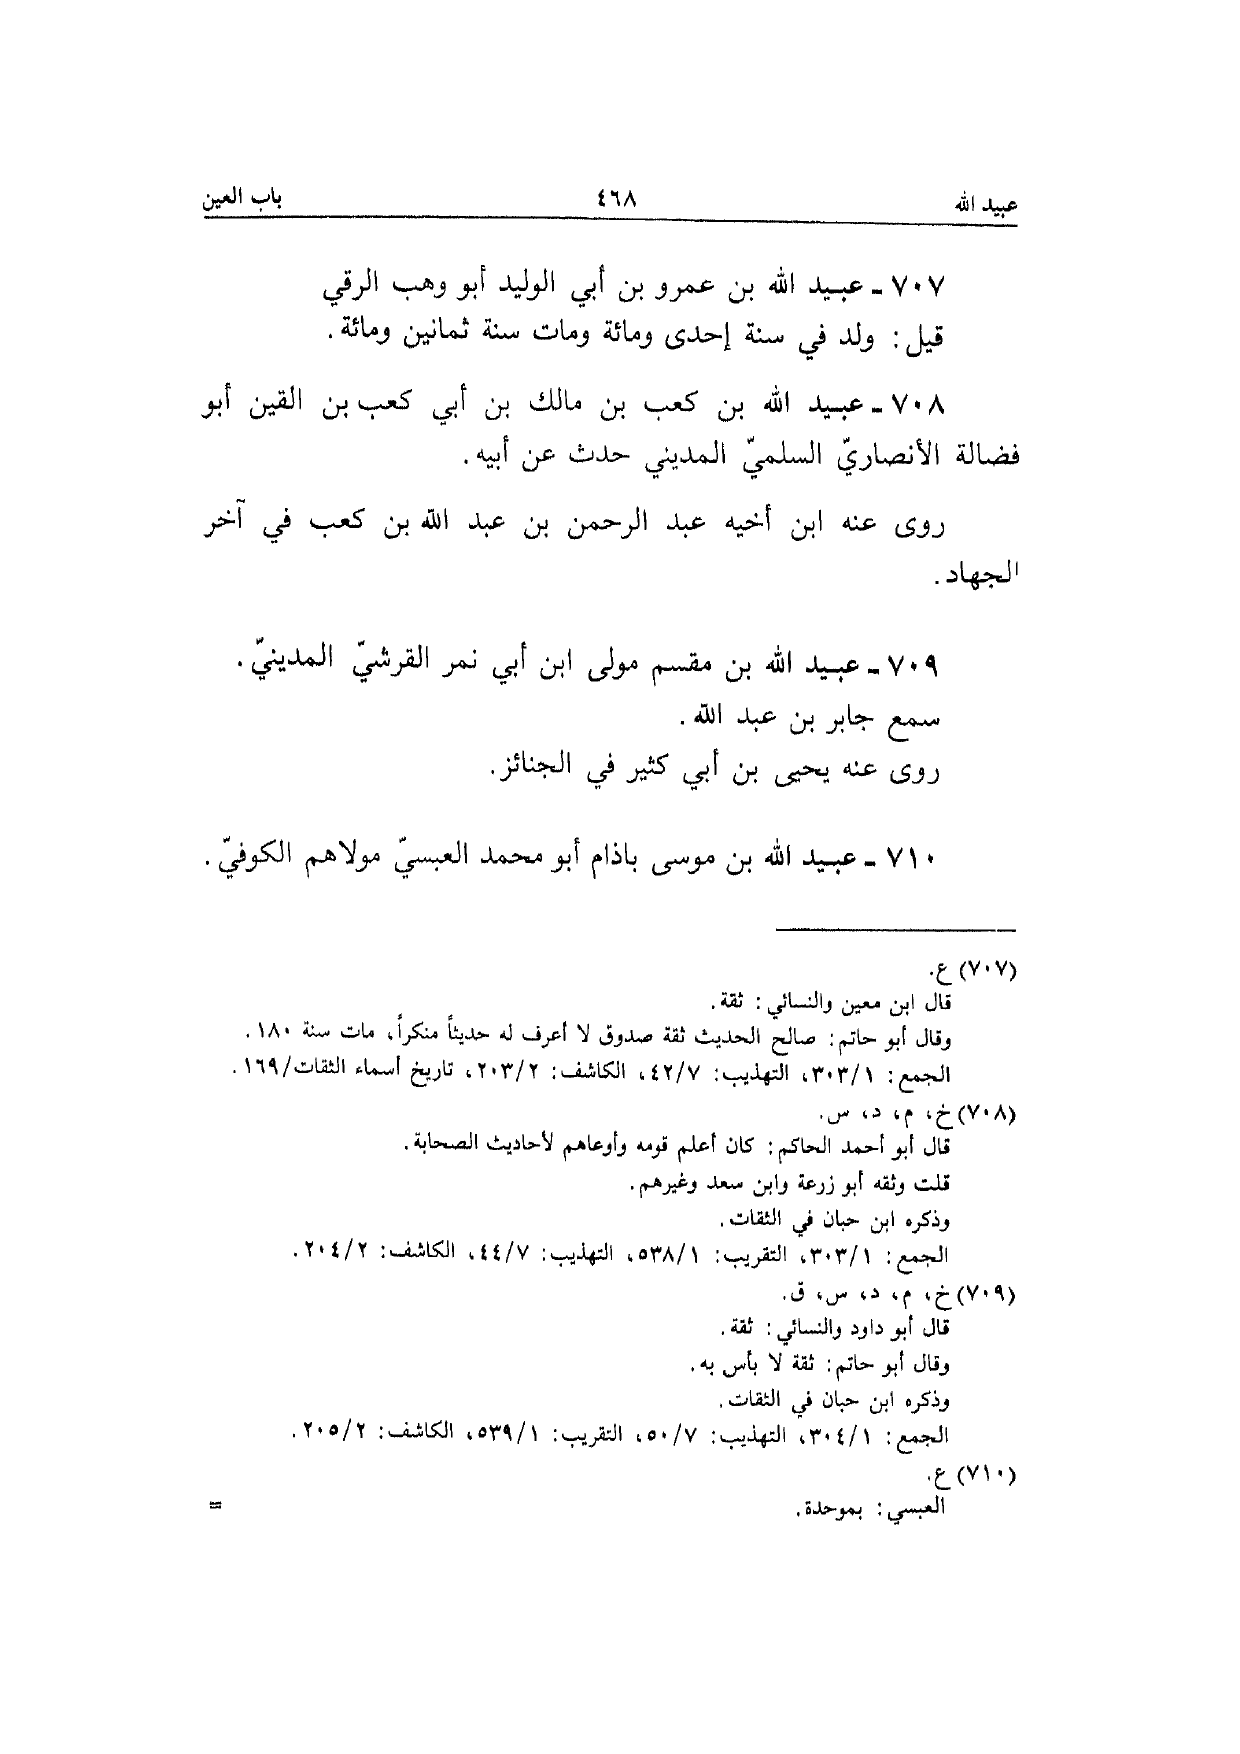 عبيد الله ٤٦٨ باب العين
٧٠٧ ـ عبيد الله بن عمرو بن أبي الوليد أبو وهب الرقي
قيل: ولد في سنة إحدى ومائة ومات سنة ثمانين ومائة.
٧٠٨ ـ عبيد الله بن كعب بن مالك بن أبي كعب بن القين أبو
فضالة الأنصاريّ السلميّ المديني حدث عن أبيه.
روى عنه ابن أخيه عبد الرحمن بن عبد الله بن كعب في آخر
الجهاد.
٧٠٩ ـ عبيد الله بن مقسم مولى ابن أبي نمر القرشيّ المدينيّ.
سمع جابر بن عبد الله.
روى عنه يحيى بن أبي كثير في الجنائز.
٧١٠ ـ عبيد الله بن موسى باذام أبو محمد العبسيّ مولاهم الكوفيّ.
(٧٠٧) ع.
قال ابن معين والنسائي: ثقة.
وقال أبو حاتم: صالح الحديث ثقة صدوق لا أعرف له حديثاً منكراً، مات سنة ١٨٠.
الجمع: ٣٠٣/١، التهذيب: ٤٢/٧، الكاشف: ٢٠٣/٢، تاريخ أسماء الثقات/١٦٩.
(٧٠٨) خ، م، د، س.
قال أبو أحمد الحاكم: كان أعلم قومه وأوعاهم لأحاديث الصحابة.
قلت وثقه أبو زرعة وابن سعد وغيرهم.
وذكره ابن حبان في الثقات.
الجمع: ٣٠٣/١، التقريب: ٥٣٨/١، التهذيب: ٤٤/٧، الكاشف: ٢٠٤/٢.
(٧٠٩) خ، م، د، س، ق.
قال أبو داود والنسائي: ثقة.
وقال أبو حاتم: ثقة لا بأس به.
وذكره ابن حبان في الثقات.
الجمع: ٣٠٤/١، التهذيب: ٥٠/٧، التقريب: ٥٣٩/١، الكاشف: ٢٠٥/٢.
(٧١٠) ع.
العبسي: بموحدة. =